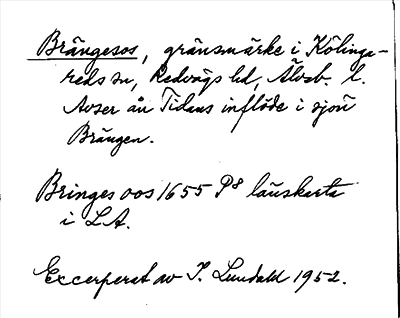 Brängesos, gränsmärke i Kölinga-
reds sn, Redvägs hd, Älvsb. l.
Avser ån Tidans inflöde i sjön
Brängen.
Bringes oos 1655 P8 länskarta
i LA.
Excerperat av I. Lundahl 1952.